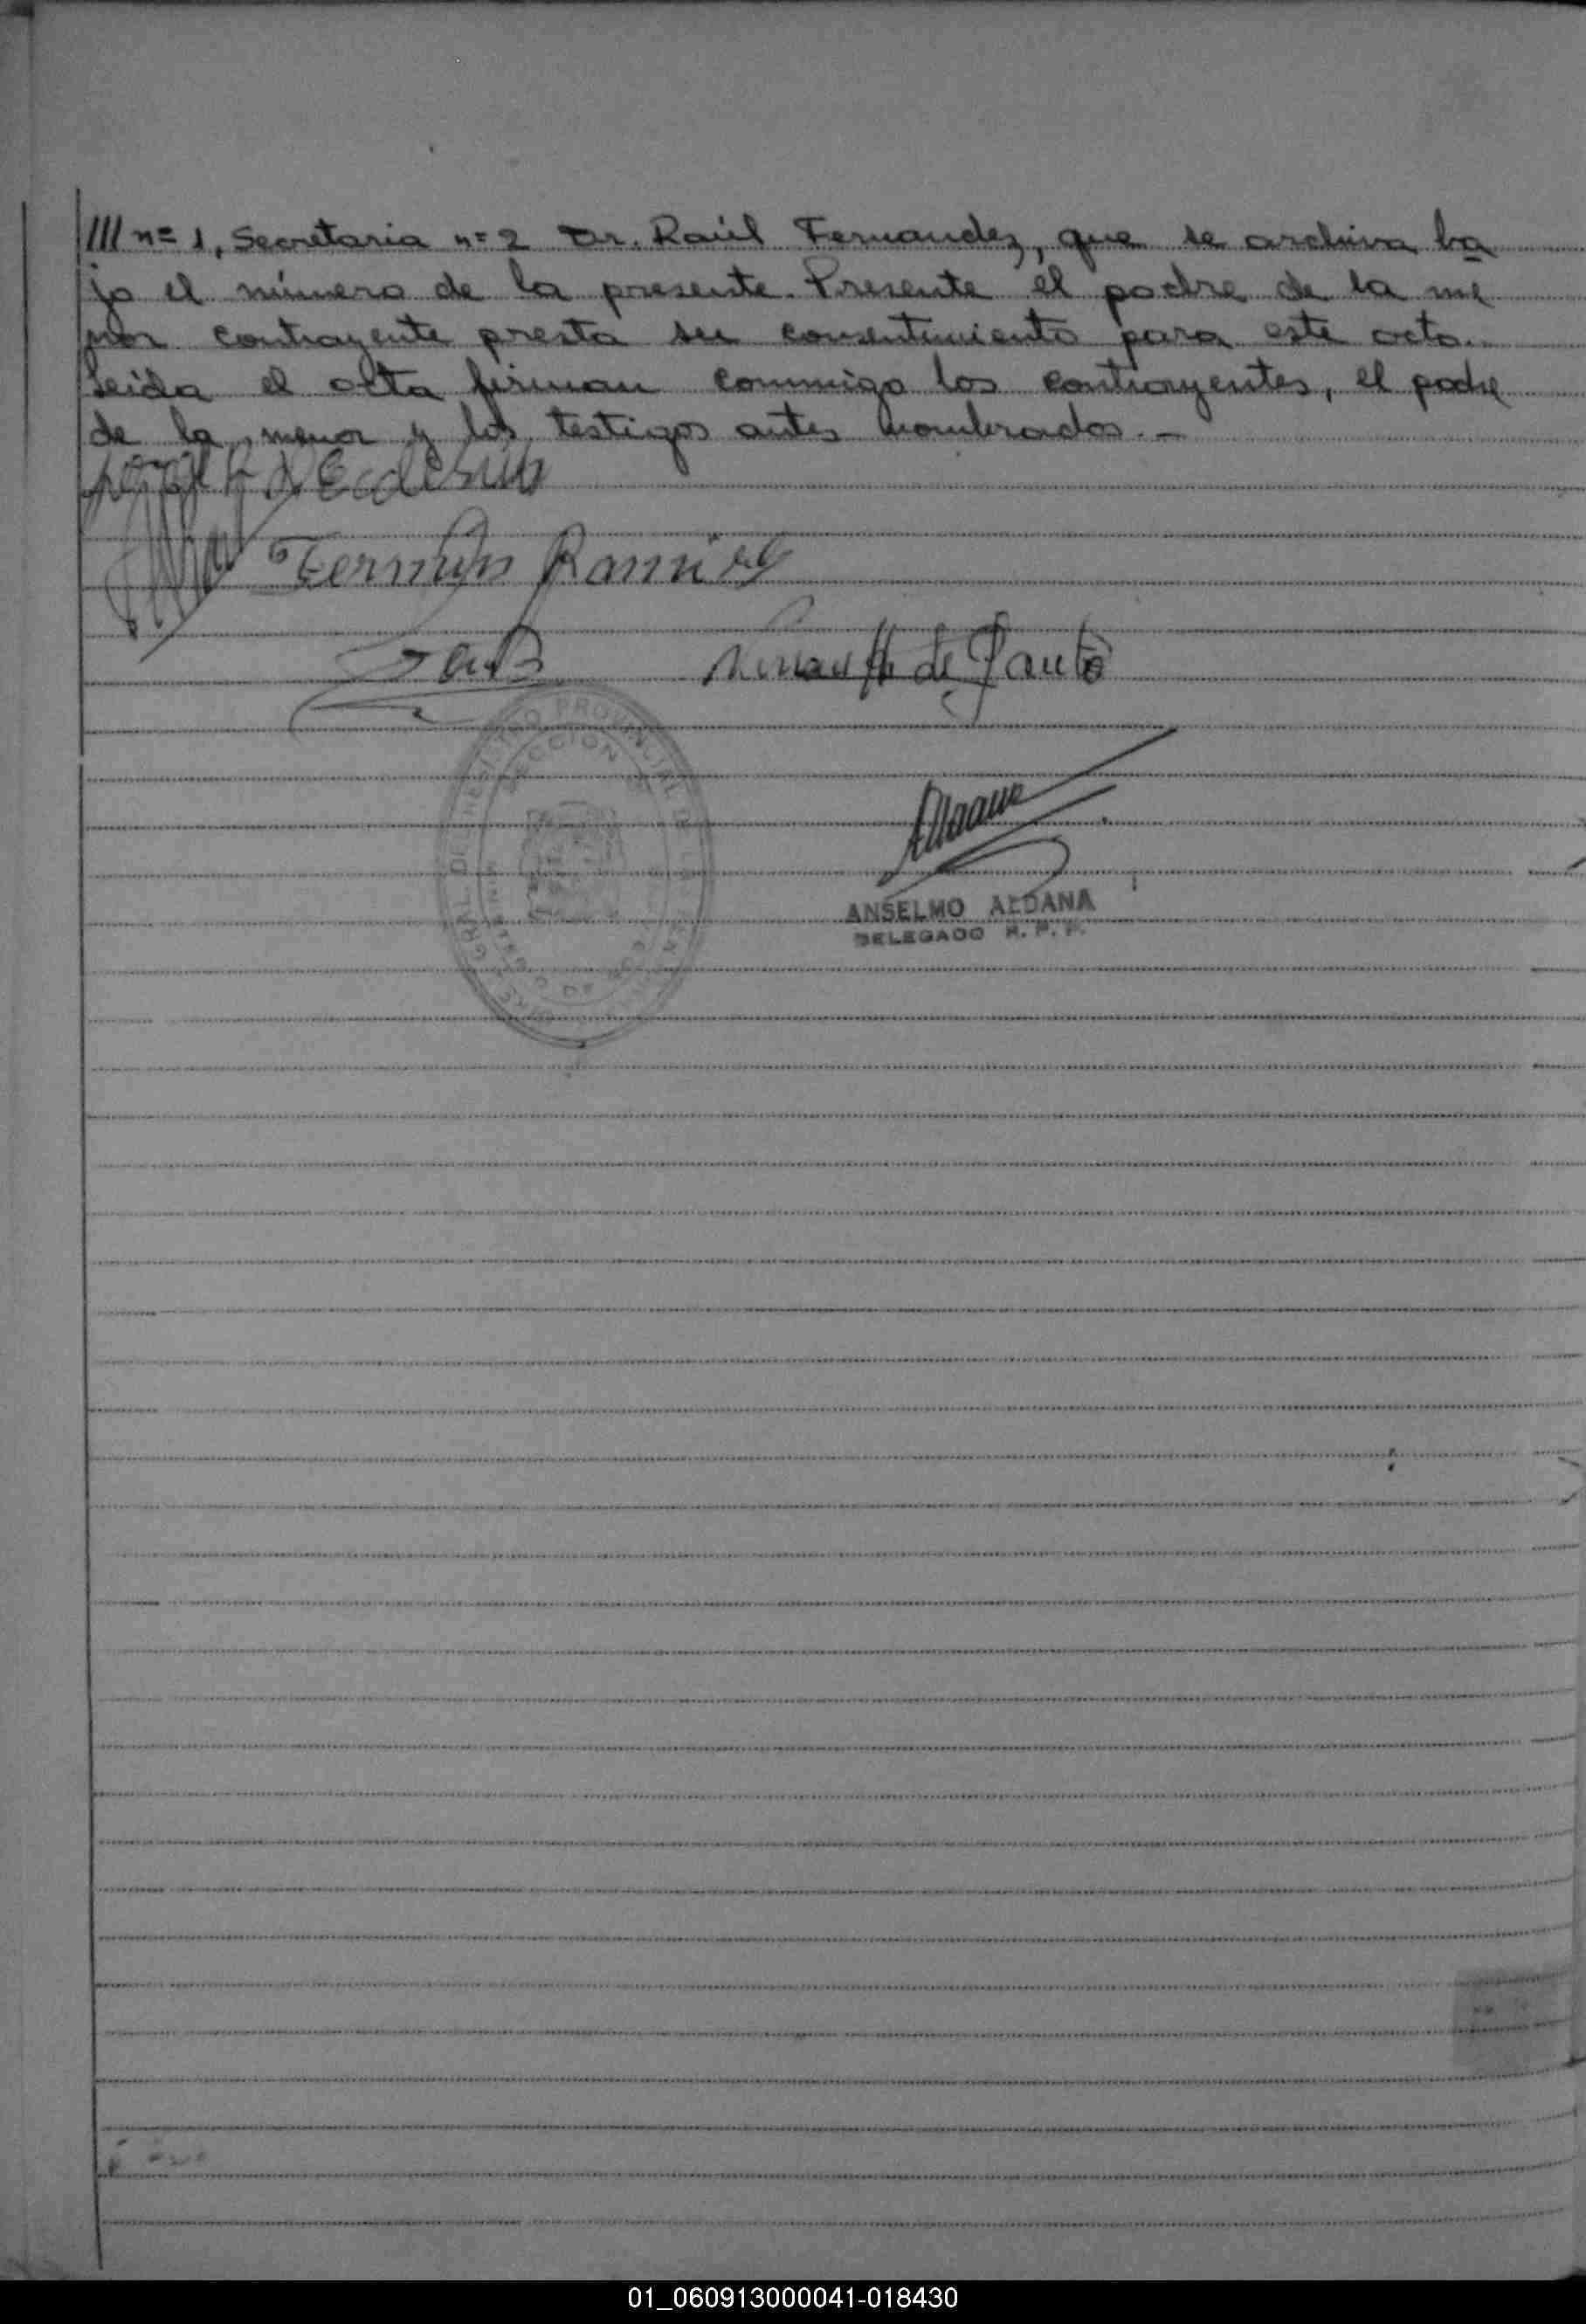 /// nº 1, Secretaria nº 2 Dr. Raúl Fernandez, que se archiva ba
jo el número de la presente. Presente el padre de la me
nor contrayente presta su consentimiento para este acto..
Leida el acta firman conmigo los contrayentes, el padre
de la menor y los testigos antes nombrados.-
Fermin Ramirez
de Santo
ANSELMO ALDANA
DELEGADO R. P. P.
01_060913000041-018430